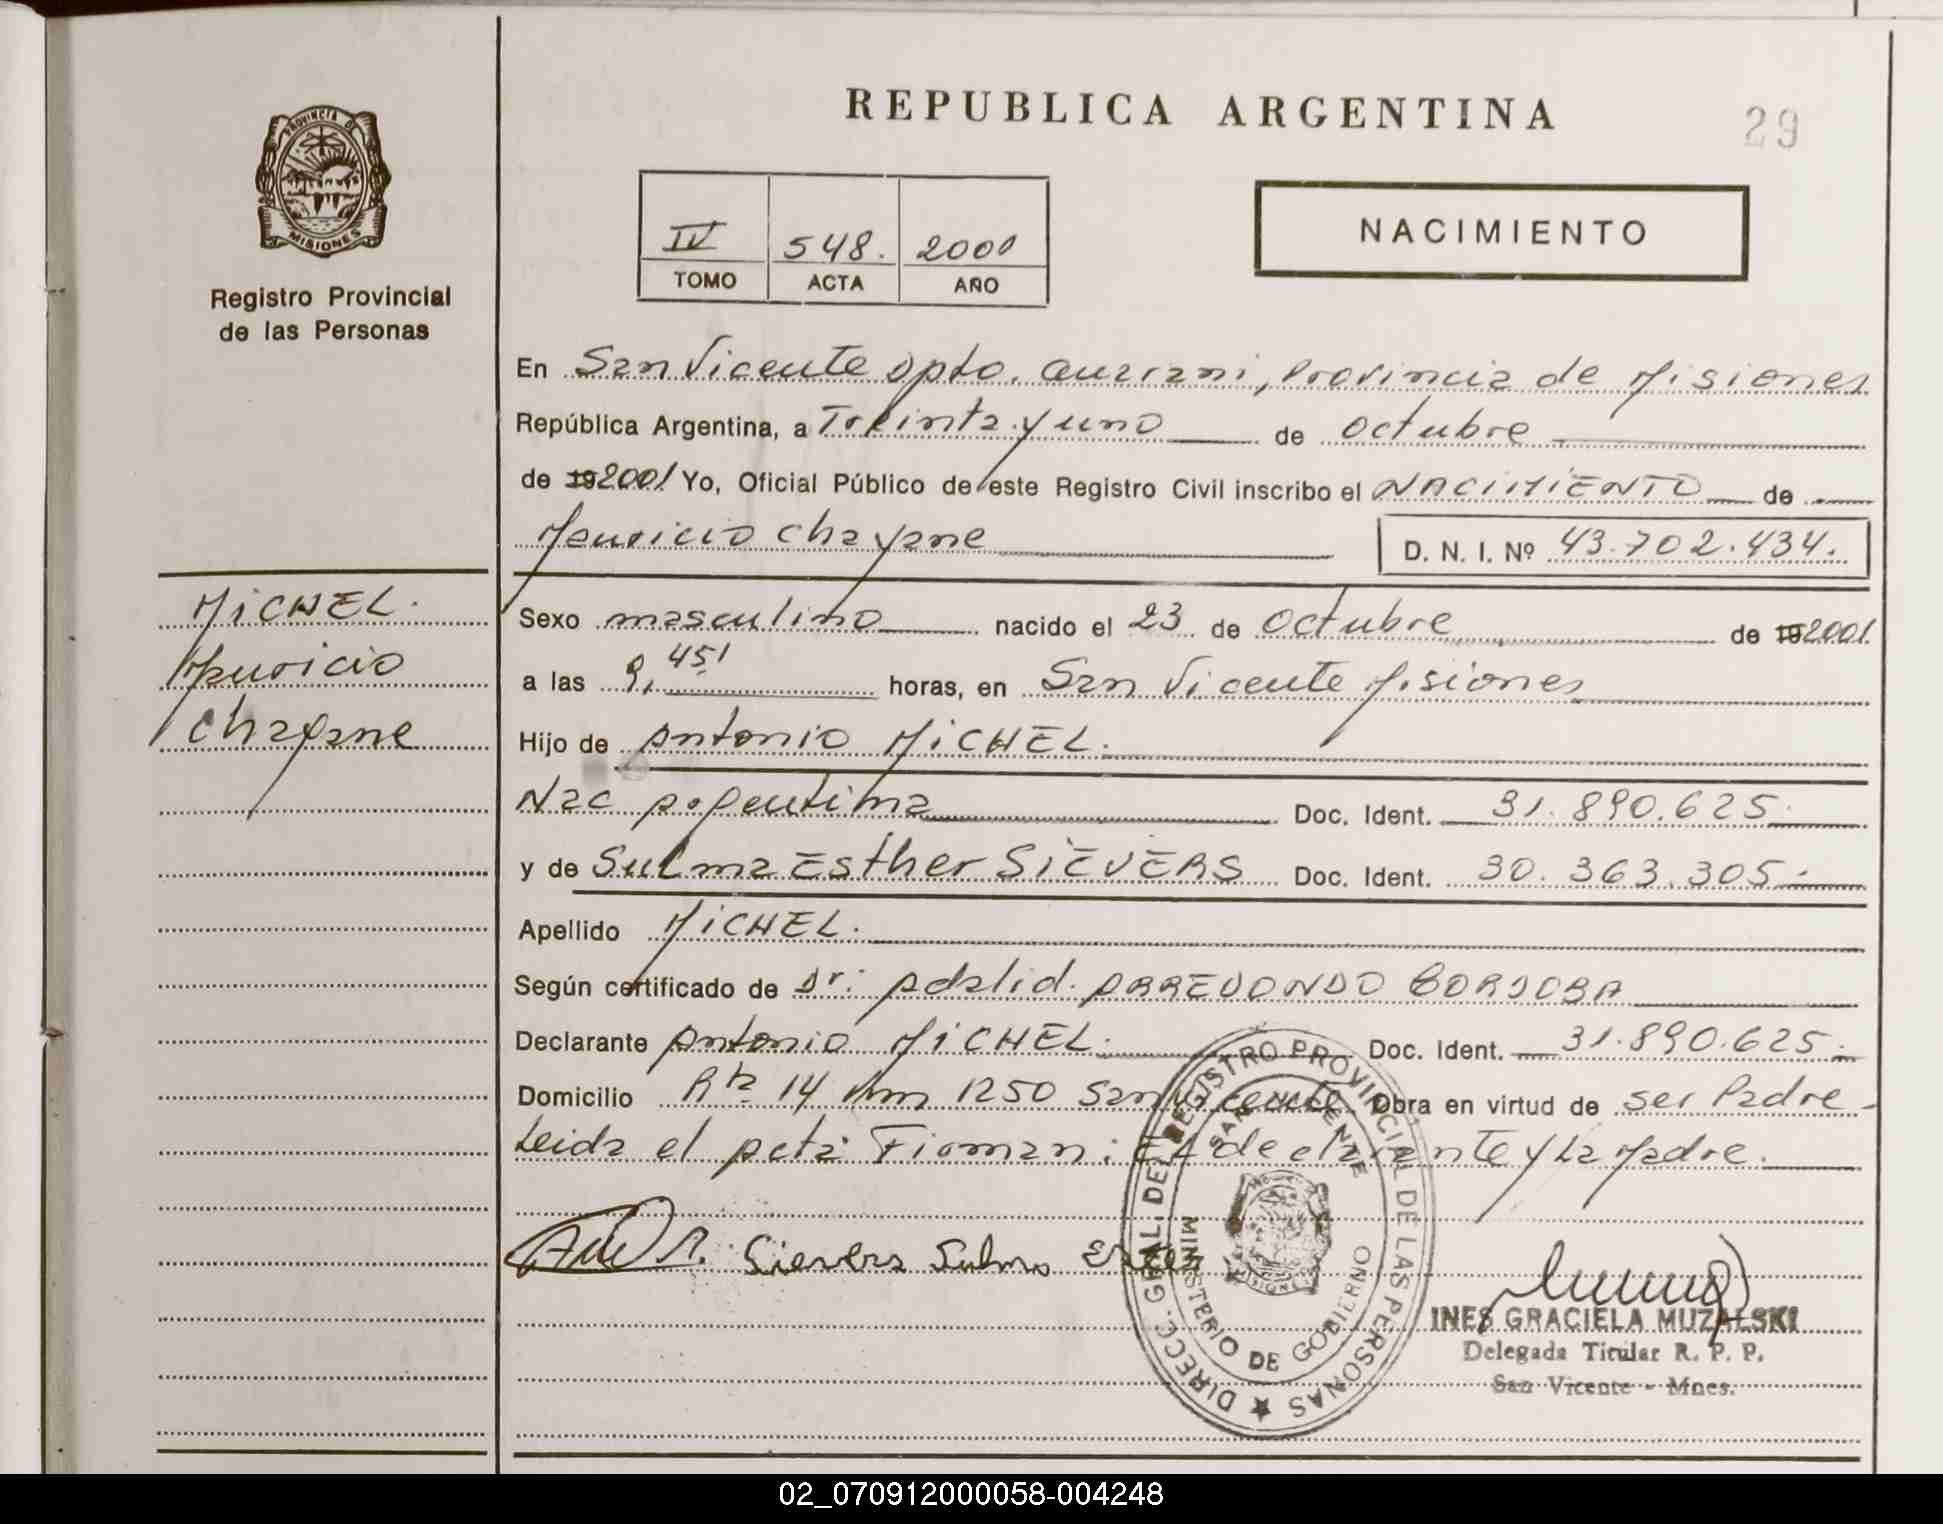 REPUBLICA ARGENTINA
29
PROVINCIA DE
MISIONES
Registro Provincial
de las Personas
IV 548. 2001
TOMO ACTA AÑO
NACIMIENTO
En San Vicente Dpto. Guarani, Provincia de Misiones
República Argentina, a Treinta y uno de Octubre
de 19 2001 Yo, Oficial Público de este Registro Civil inscribo el NACIMIENTO de
Mauricio Chayane
D. N. I. Nº 43.702.434.
MICHEL.
Mauricio
Chayane
Sexo masculino nacido el 23 de Octubre de 19 2001.
a las 9,45' horas, en San Vicente Misiones
Hijo de Antonio MICHEL.
Nac Argentina Doc. Ident. 31.890.625.
y de Sulma Esther SIEVERS Doc. Ident. 30.363.305.
Apellido MICHEL.
Según certificado de Dr. Adalid. ARREDONDO CORDOBA
Declarante Antonio MICHEL. Doc. Ident. 31.890.625.
Domicilio Rta 14 km 1250 San Vicente Obra en virtud de ser Padre
Leida el Acta Firman: El declarante y La Madre.
Sievers Sulma Ester
DIRECC. GRAL. DEL REGISTRO PROVINCIAL DE LAS PERSONAS
SAN VICENTE
MINISTERIO DE GOBIERNO
MISIONES
INES GRACIELA MUZALSKI
Delegada Titular R. P. P.
San Vicente - Mnes.
02_070912000058-004248